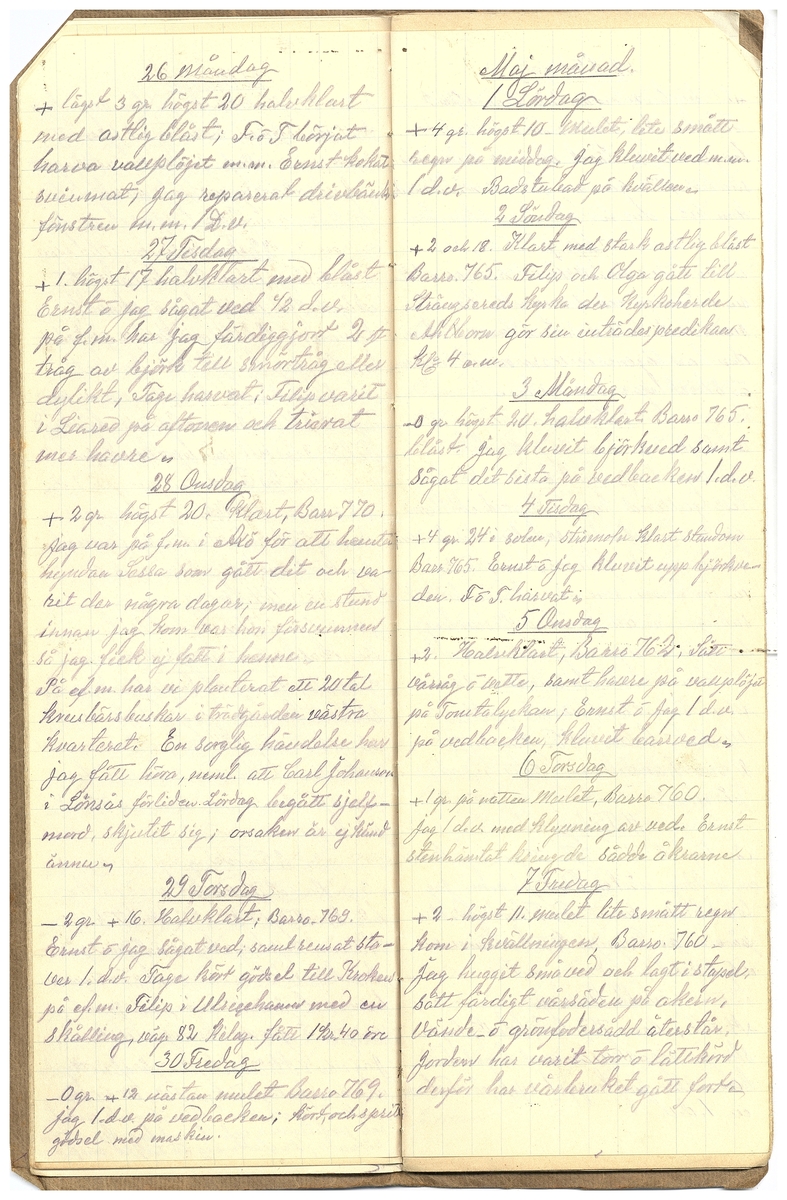 26 Måndag
+ lägst 3 gr. högst 20 halvklart
med ostlig blåst; F. o T börjat
harva vallplöjet m.m. Ernst kokat
svinmat; jag reparerat drivbänks
fönstren m.m. 1 D.v.
27 Tisdag
+ 1. högst 17 halvklart med blåst
Ernst o jag sågat ved 1/2 d.v.
på f.m. har jag färdiggjort 2 st
tråg av björk till smörtråg eller
dylikt, Tage harvat; Filip varit
i Liared på aftonen och triorat
mer havre „
28 Onsdag
+ 2 gr högst 20. Klart, Barr 770.
Jag var på f.m. i Arö för att hemta
hyndan Sessa som gått dit och va-
rit der några dagar; men en stund
innan jag kom var hon försvunnen
så jag fick ej fatt i henne „
På ef.m. har vi planterat ett 20 tal
krusbärsbuskar i trädgården västra
kvarteret. En sorglig händelse har
jag fått höra, neml. att Carl Johanson
i Lönsås förliden Lördag begått sjelf-
mord, skjutet sig; orsaken är ej känd
ännu „
29 Torsdag
– 2 gr. + 16. Halvklart; Barro. 769.
Ernst o jag sågat ved; samt rensat sta-
ver 1. d.v. Tage kört gödsel till Kroken
på ef.m. Filip i Ulricehamn med en
skålling, väg 82 kelog. fått 1 kr. 40 öre
30 Fredag
– 0 gr. + 12 nästan mulet Barro 769.
jag 1. d.v. på vedbacken; kört och sprit
gödsel med maskin.
Maj månad.
1 Lördag
+ 4 gr. högst 10 – mulet; lite smått
regn på middag. jag kluvit ved m.m.
1 d.v. Badstubad på kvällen „
2 Söndag
+ 2 och 18. Klart med stark ostlig blåst
Barro. 765. Filip och Olga gått till
Strängsereds kyrka der Kyrkoherde
Ahlborn gör sin inträdespredikan
kl: 4 e.m.
3 Måndag
– 0 gr högst 20. halvklart Barro 765.
blåst. jag kluvit björkved samt
sågat det sista på vedbacken 1. d.v.
4 Tisdag
+ 4 gr. 24 i solen, strömoln klart stundom
Barr 765. Ernst o jag kluvit upp björkve-
den. F o T. harvat „
5 Onsdag
+ 2. Halvklart, Barro 762; Sått
vårråg o vette, samt havre på vallplöjet
på Tomtalyckan; Ernst o jag 1 d.v.
på vedbacken, kluvit barrved „
6 Torsdag
+ 1 gr. på natten Mulet, Barro 760.
jag 1 d.v. med klyvning av ved. Ernst
stenhämtat kring de sådde åkrarne
7 Fredag
+ 2 – högst 11. mulet lite smått regn
kom i kvällningen, Barro. 760 –
Jag huggit småved och lagt i stapel;
sått färdigt vårsäden på åkern,
Vände- o grönfodersådd återstår.
Jorden har varit torr o lättkörd
derför har vårbruket gått fort „